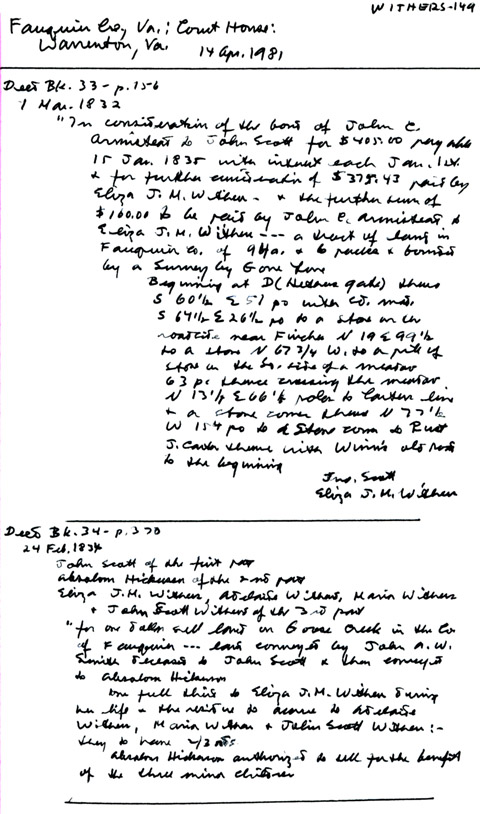 WITHERS-149
Fauquier Co, Va.; Court House:
Warrenton, Va.
14 Apr. 1981
Deed Bk. 33 - p. 156
1 Mar. 1832
"In consideration of the bond of John C.
Armistead to John Scott for $405.00 payable
15 Jan. 1835 with interest each Jan. 1st.
& for further consideration of $375.43 paid by
Eliza J. M. Withers - & the further sum of
$100.00 to be paid by John C. Armistead to
Eliza J. M. Withers --- a tract of land in
Fauquier Co. of 94 a. & 6 poles & bounded
by a Survey by Love
Beginning at D (Withers gate) thence
S 60 1/2 E 51 po with Co. road
S 64 1/2 E 26 1/2 po to a stone on the
roadside near Finches N 19 E 99 1/2
to a stone N 67 3/4 W. to a pile of
stone on the So. side of a meadow
63 po thence crossing the meadow
N 13 1/2 E 66 1/2 poles to Carters line
& a stone corner thence N 77 1/2
W 154 po to a Stone corner to Rust
J. Carter thence with Winn's old road
to the beginning
Jno. Scott
Eliza J. M. Withers
Deed Bk. 34 - p. 370
24 Feb. 1834
John Scott of the first part
Absalom Hickerson of the 2nd part
Eliza J. M. Withers, Adelaide Withers, Maria Withers
& John Scott Withers of the 3rd part
"for one dollar sell land on Goose Creek in the Co.
of Fauquier --- land conveyed by John A. W.
Smith deceased to John Scott & then conveyed
to Absalom Hickerson
one full third to Eliza J. M. Withers during
her life & the residue to accrue to Adelaide
Withers, Maria Withers & John Scott Withers:-
they to have 2/3 rds
Absalom Hickerson authorized to sell for the benefit
of the three minor children